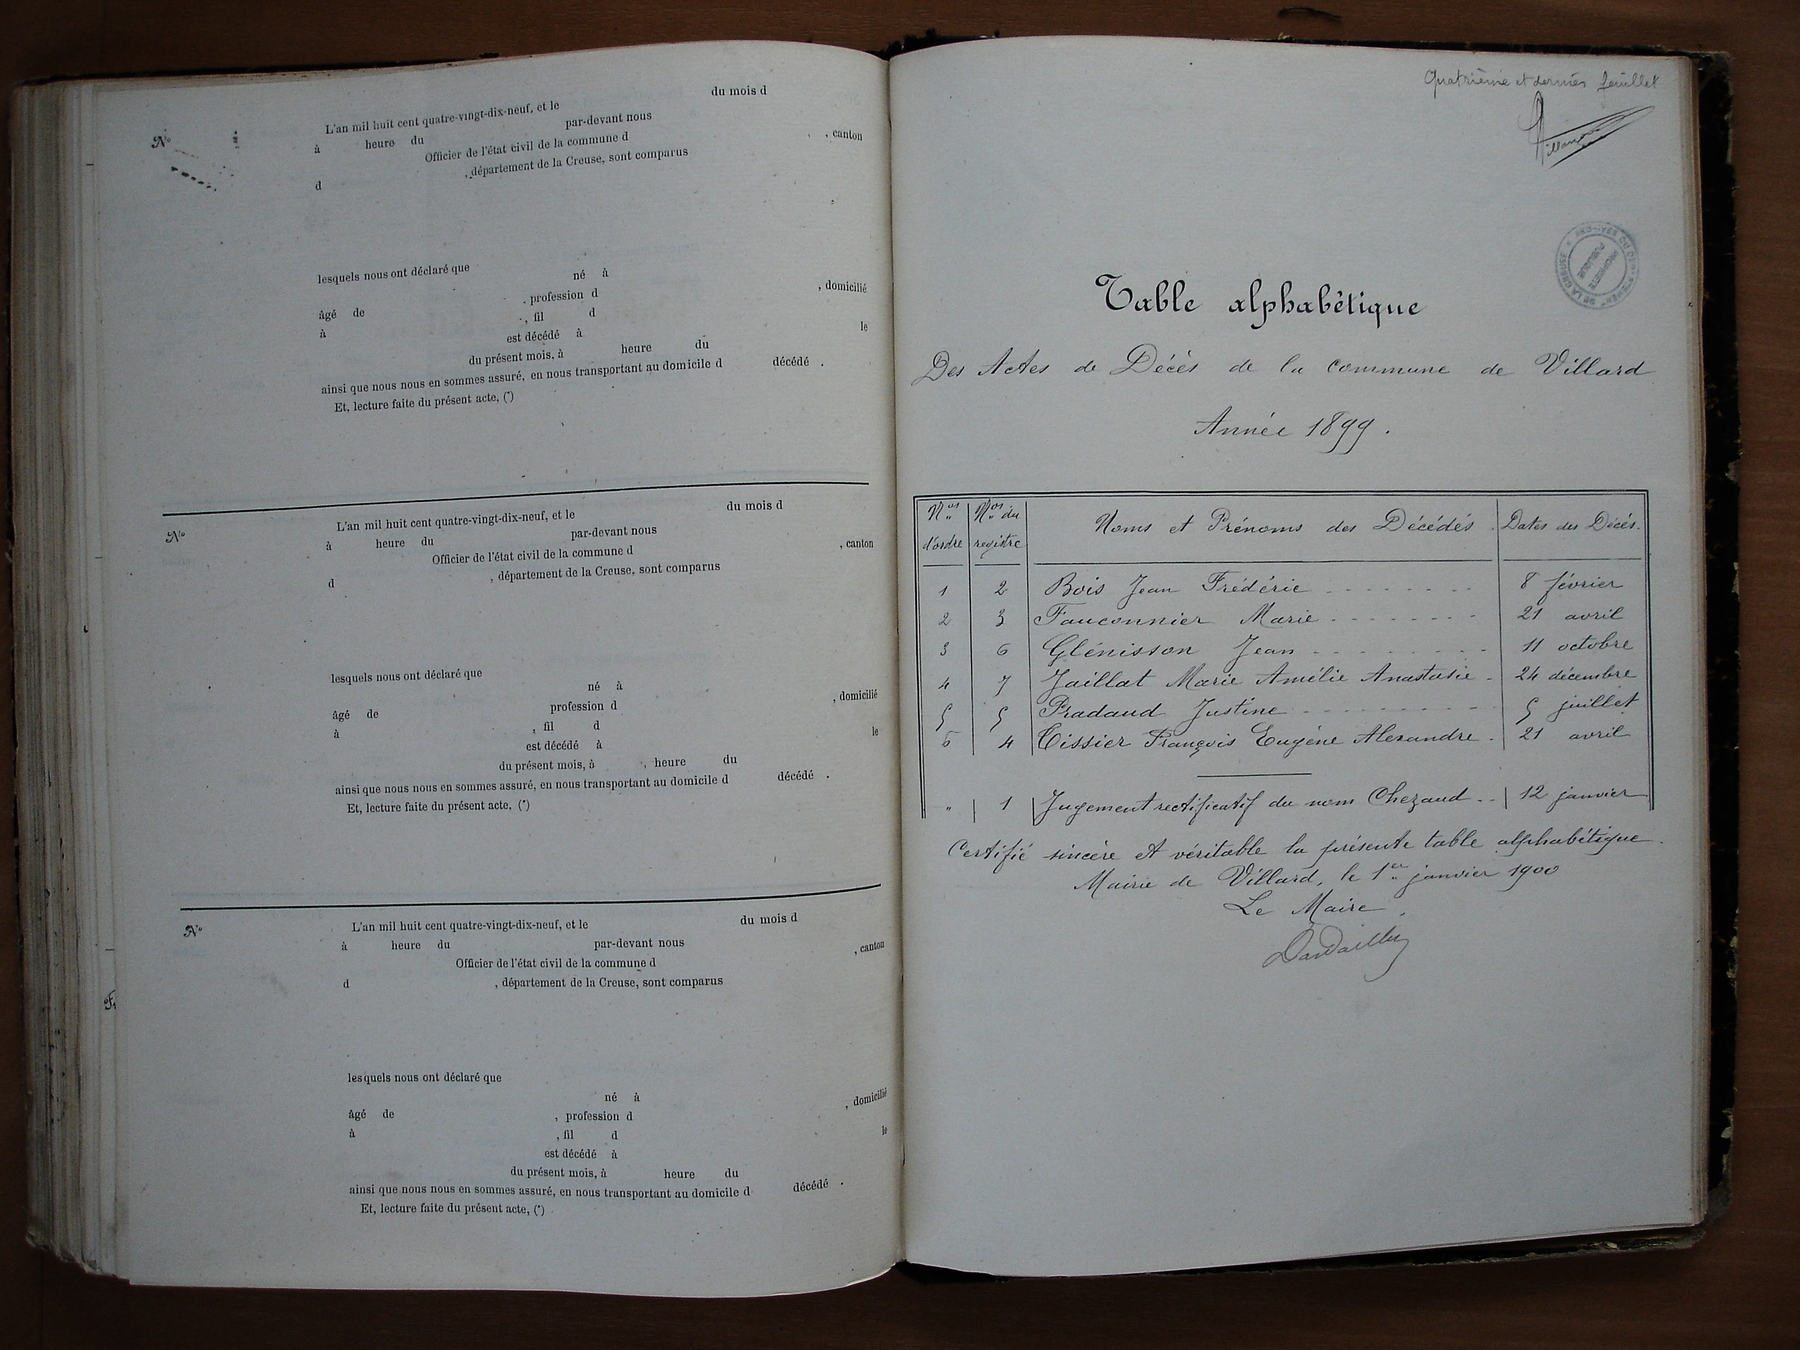 N°
L'an mil huit cent quatre-vingt-dix-neuf, et le du mois d
à heure du par-devant nous
Officier de l'état civil de la commune d , canton
d , département de la Creuse, sont comparus
lesquels nous ont déclaré que
né à
âgé de , profession d , domicilié
à , fil d
est décédé à le
du présent mois, à heure du
ainsi que nous nous en sommes assuré, en nous transportant au domicile d décédé .
Et, lecture faite du présent acte, (*)
N°
L'an mil huit cent quatre-vingt-dix-neuf, et le du mois d
à heure du par-devant nous
Officier de l'état civil de la commune d , canton
d , département de la Creuse, sont comparus
lesquels nous ont déclaré que
né à
âgé de profession d , domicilié
à , fil d
est décédé à le
du présent mois, à , heure du
ainsi que nous nous en sommes assuré, en nous transportant au domicile d décédé .
Et, lecture faite du présent acte, (*)
N°
L'an mil huit cent quatre-vingt-dix-neuf, et le du mois d
à heure du par-devant nous
Officier de l'état civil de la commune d , canton
d , département de la Creuse, sont comparus
lesquels nous ont déclaré que
né à
âgé de , profession d , domicilié
à , fil d
est décédé à le
du présent mois, à heure du
ainsi que nous nous en sommes assuré, en nous transportant au domicile d décédé .
Et, lecture faite du présent acte, (*)
Quatrième et dernier feuillet
Table alphabétique
Des Actes de Décès de la commune de Villard
Année 1899.
Nos d'ordre Nos du registre Noms et Prénoms des Décédés. Dates des Décès.
1 2 Bois Jean Frédéric 8 février
2 3 Fauconnier Marie 21 avril
3 6 Glénisson Jean 11 octobre
4 7 Jaillat Marie Amélie Anastasie 24 décembre
5 5 Pradaud Justine 5 juillet
6 4 Tissier François Eugène Alexandre 21 avril
" 1 Jugement rectificatif du nom Chezaud 12 janvier
Certifié sincère et véritable la présente table alphabétique.
Mairie de Villard, le 1er janvier 1900
Le Maire,